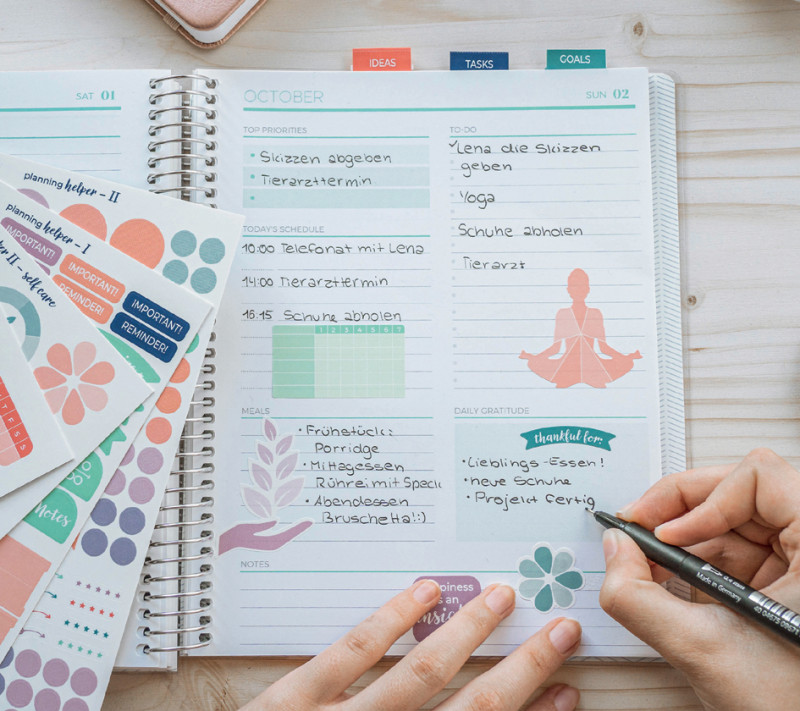 IDEAS
TASKS
GOALS
SAT 01
OCTOBER
SUN 02
TOP PRIORITIES
• Skizzen abgeben
• Tierarzttermin
TO-DO
✓Lena die Skizzen
geben
Yoga
Schuhe abholen
Tierarzt
TODAY'S SCHEDULE
10:00 Telefonat mit Lena
14:00 Tierarzttermin
16:15 Schuhe abholen
1 2 3 4 5 6 7
MEALS
• Frühstück:
Porridge
• Mittagessen
Rührei mit Speck
• Abendessen
Bruschetta!:)
DAILY GRATITUDE
thankful for:
• Lieblings-Essen!
• neue Schuhe
• Projekt fertig
NOTES
planning helper - II
planning helper - I
IMPORTANT!
IMPORTANT!
REMINDER!
IMPORTANT!
REMINDER!
II - self care
Notes
is an
Made in Germany